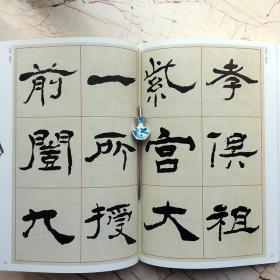 孝俱祖
紫宮大
一所授
前闓九